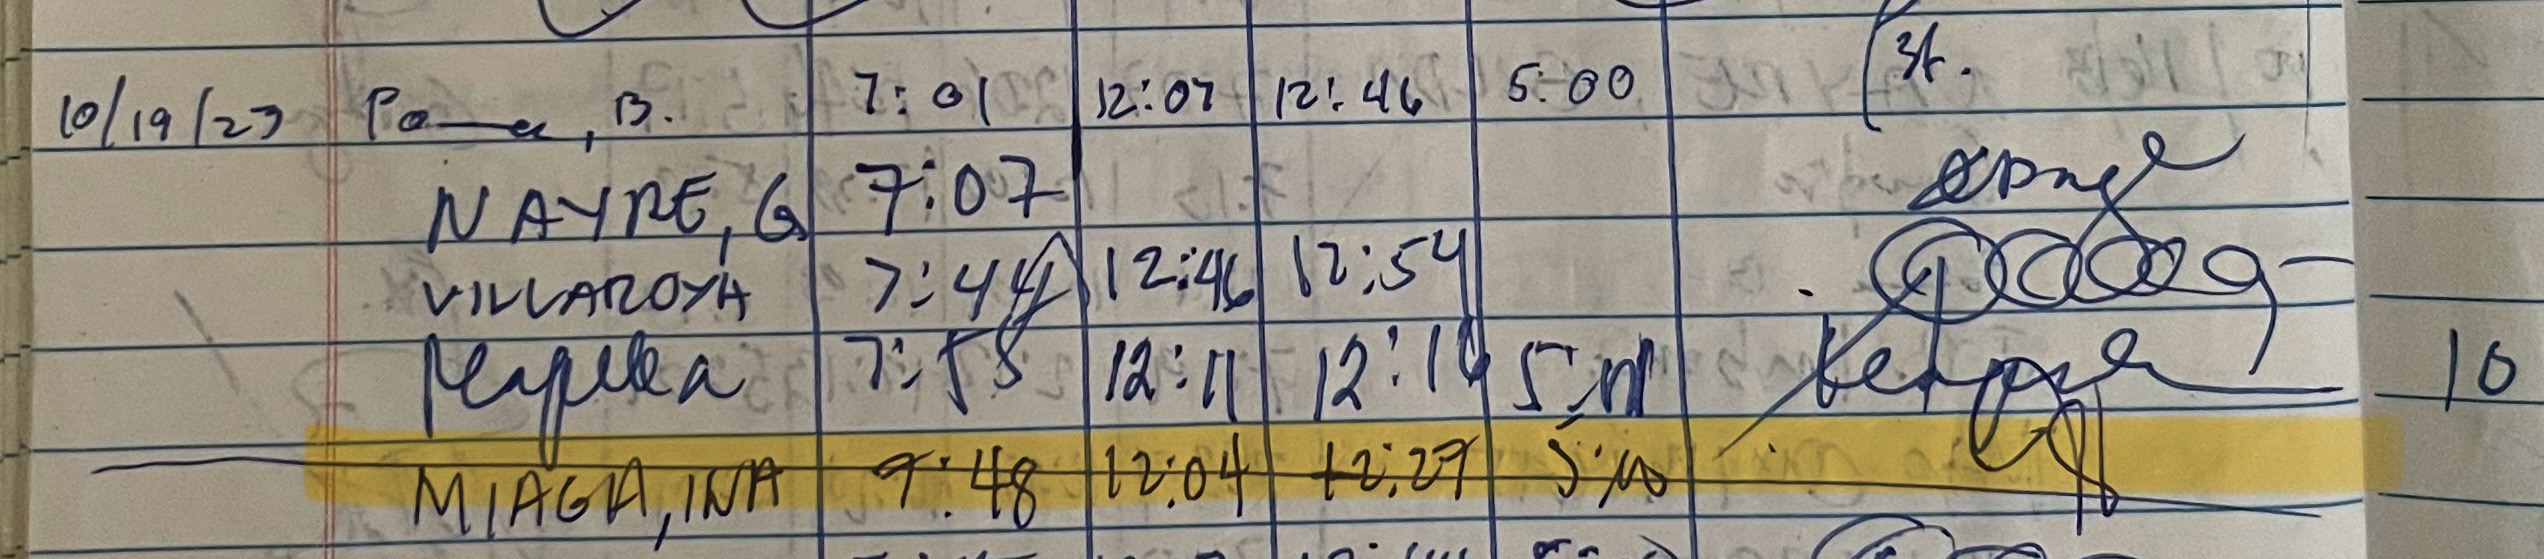 10/19/23 B. 7:01 12:07 12:46 5:00 3f.
NAYRE, G 7:07
VILLAROYA 7:44 12:46 12:54
7:58 12:11 12:16 10
MIAGA, INA 9:48 12:04 12:29 5:00